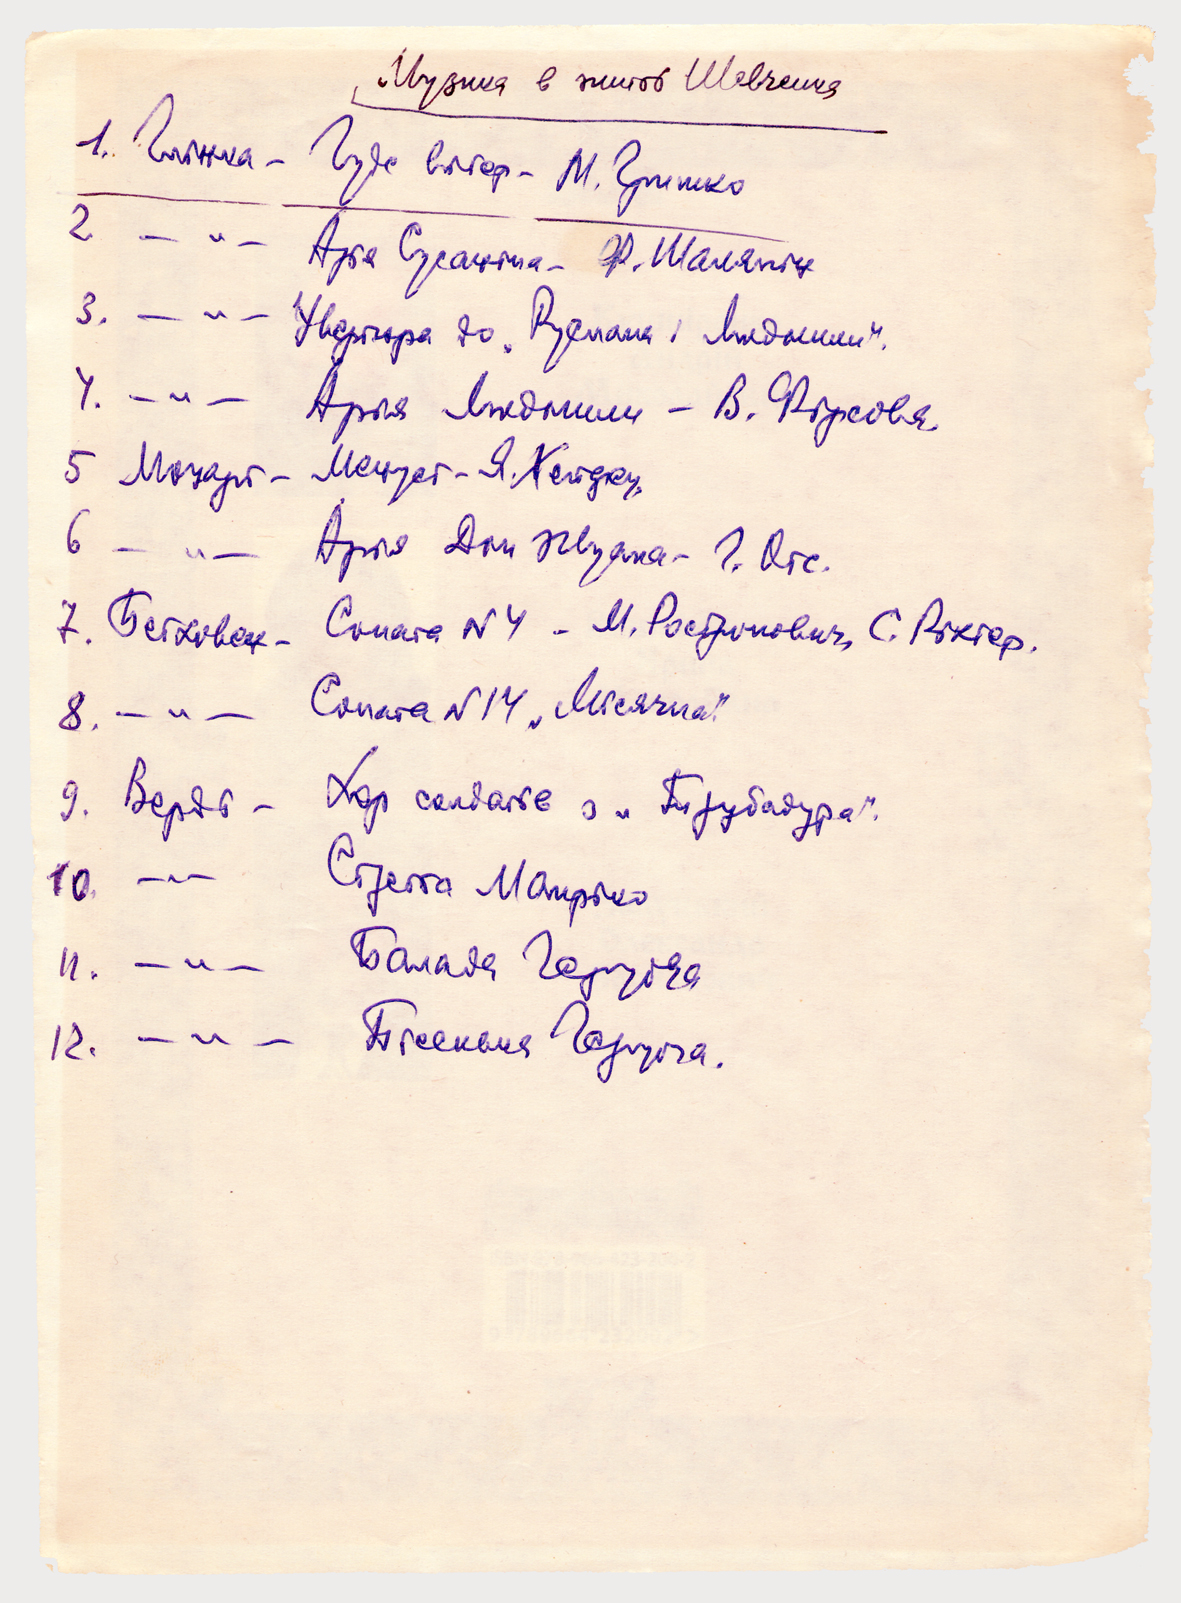 „Музика в житті Шевченка
1. Глінка – Гуде вітер – М. Гришко
2 — „ — Арія Сусаніна – Ф. Шаляпін
3. — „ — Увертюра до „Руслана і Людмили".
4. — „ — Арія Людмили – В. Фірсова.
5 Моцарт – Менует – Я. Хейфец.
6 — „ — Арія Дон Жуана – Г. Отс.
7. Бетховен – Соната N4 – М. Ростропович, С. Ріхтер.
8. — „ — Соната N14 „Місячна"
9. Верді – Хор солдатів з „Трубадура".
10. — „ — Стретта Манріко
11. — „ — Балада Герцога
12. — „ — Пісенька Герцога.